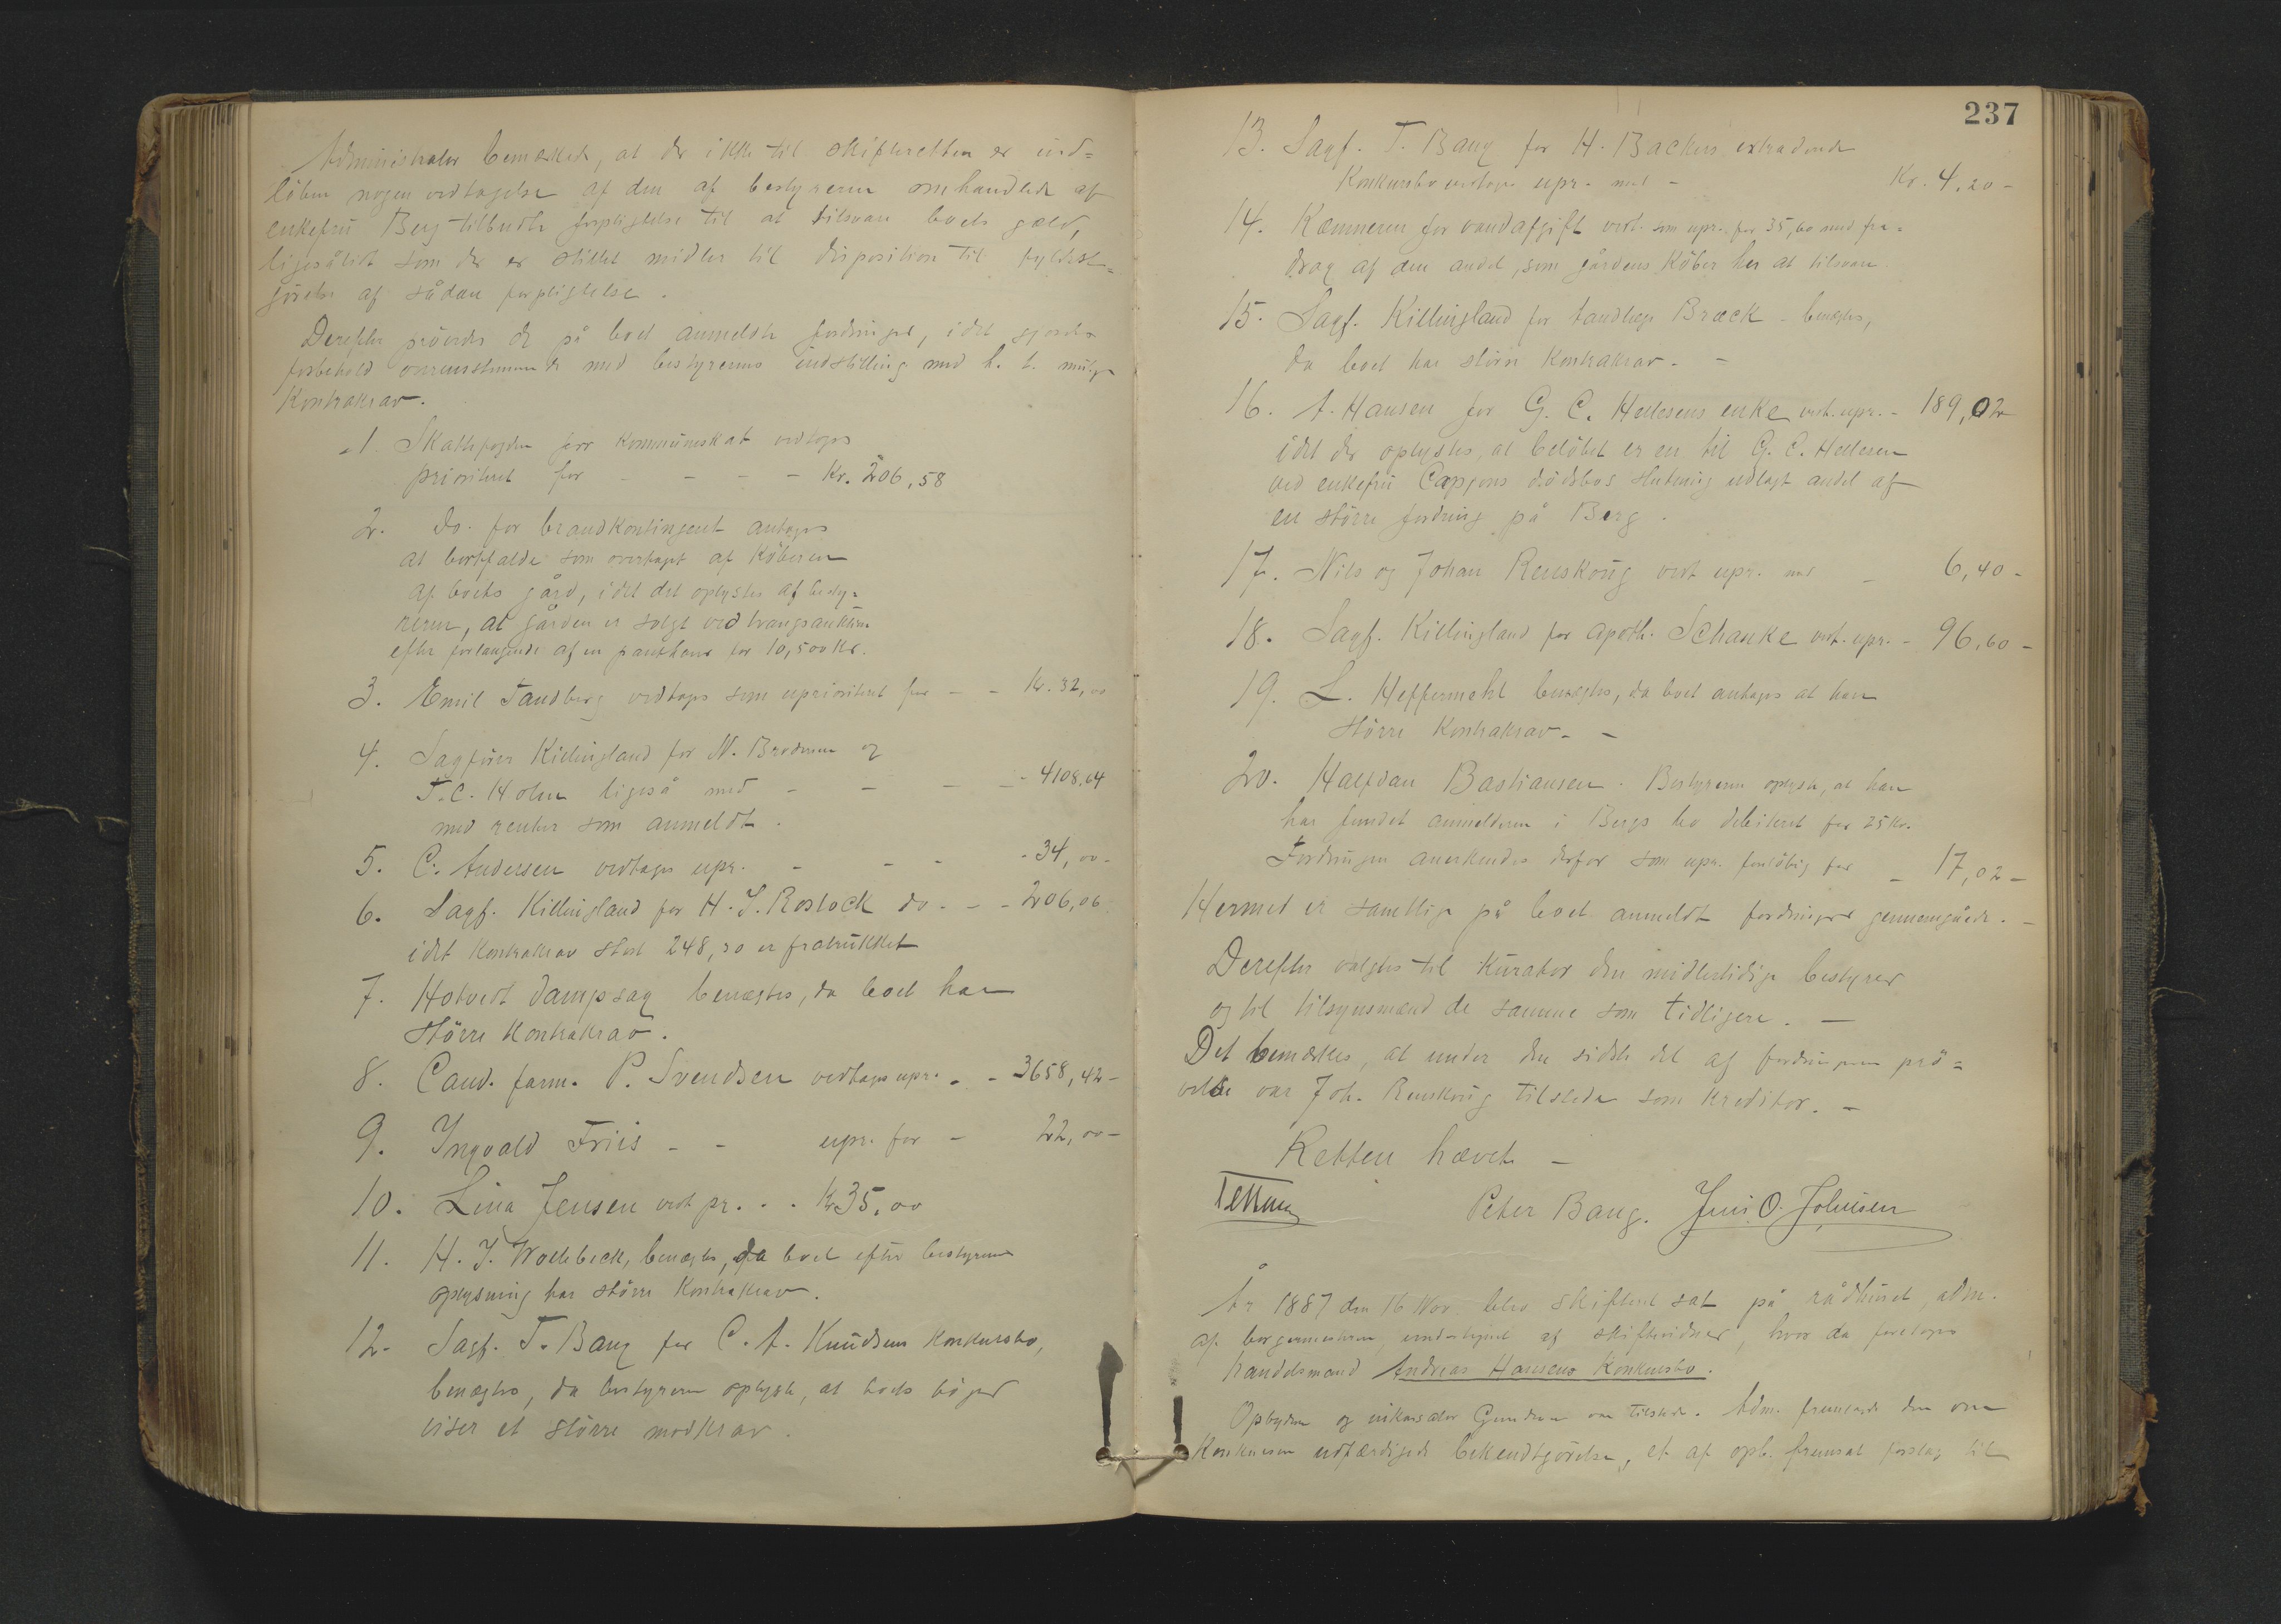 Administrator bemærkede, at der ikke til skifteretten er ind=
löben nogen vedtagelse af den af bestyreren omhandlede af
enkefru Berg tilbudte forpligtelse til at tilsvare boets gæld,
ligesålidt som der er stillet midler til disposition til fyldest=
görelse af sådan forpligtelse.
Derefter prövedes de på boet anmeldte fordringer, idet gjordes
forbehold overensstemmende med bestyrerens indstilling med h. t. mulige
Kontrakrav.
1. Skattefogden for kommuneskat vedtoges
prioriteret for - - - - Kr. 206,58
2. Do. for brandkontingent antoges
at bortfalde som overtaget af Köberen
af boets gård, idet det oplystes af besty=
reren, at gården er solgt ved tvangsauktion
efter forlangende af en panthaver for 10,500 Kr.
3. Emil Tandberg vedtoges som uprioriteret for - - Kr. 32,00
4. Sagförer Killingland for N. Brodersen og
T. C. Holm ligeså med - - - - 4108,64
med renter som anmeldt.
5. C. Andersen vedtages upr. - - - - 34,00 -
6. Sagf. Killingland for H. J. Rostock do - - - 206,06
idet Kontrakrav stort 248,30 er fratrukket
7. Hotvedt dampsag benægtes, da boet har
större Kontrakrav.
8. Cand. farm. P. Svendsen vedtages upr. - - 3658,42 -
9. Ingvald Friis - - upr. for - 22,00 -
10. Lina Jensen vedt pr. . . Kr 35,00
11. H. J. Wollebeck, benægtes, da boet efter bestyrerens
oplysning har större Kontrakrav.
12. Sagf. T. Bang for C. A. Knudsens konkursbo,
benægtes, da bestyreren oplyste, at boets böger
viser et större modkrav.
237
13. Sagf. T. Bang for H. Backers extraderede
Konkursbo vedtoges upr. med - Kr. 4,20 -
14. Kæmneren for vandafgift vedt. som upr. for 35,60 med fra=
drag af den andel, som gårdens Köber har at tilsvare
15. Sagf. Killingland for tandlæge Bræck - benægtes,
da boet har större Kontrakrav. -
16. A. Hansen for G. C. Hellesens enke vedt. upr. - 189,02
idet der oplystes, at belöbet er en til G. C. Hellesen
ved enkefru Cappens dödsbos slutning udlagt andel af
en större fordring på Berg.
17. Nils og Johan Renskoug vedt upr. med - 6,40 -
18. Sagf. Killingland for apoth. Schanke vedt. upr. - 96,60 -
19. L. Heffermehl benægtes, da boet antages at have
större Kontrakrav. -
20. Halfdan Bastiansen. Bestyreren oplyste, at han
har fundet anmelderen i Bergs bo debiteret for 25 Kr.
Fordringen anerkendes derfor som upr. foreløbig for - 17,02 -
Hermed er samtlige på boet anmeldte fordringer gennemgåede. -
Derefter valgtes til Kurator den midlertidige bestyrer
og til tilsynsmænd de samme som tidligere. -
Det bemærkes, at under den sidste del af fordringernes prö=
velse var Joh. Renskoug tilstede som kreditor. -
Retten hævet -
Peter Bang. Jens O. Johnsen
År 1887 den 16 Nov. blev skifteret sat på rådhuset, adm.
af borgermesteren, undertegnet af skiftevidner, hvor da foretoges
handelsmand Andreas Hansens Konkursbo.
Opbyderen og inkassator Gundersen var tilstede. Adm. fremlagde den om
Konkursen udfærdigede bekendtgörelse, et af opb. fremsat forslag til